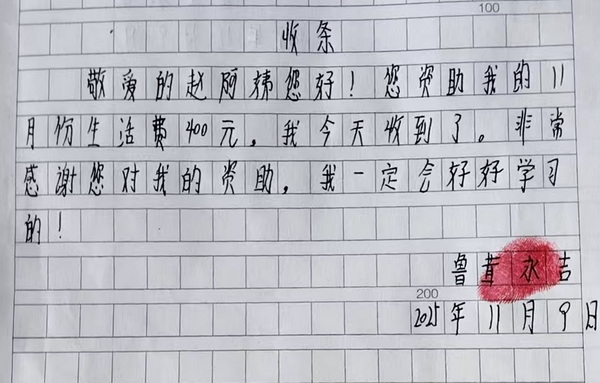 100
收条
敬爱的赵阿姨您好！您资助我的11
月份生活费400元，我今天收到了。非常
感谢您对我的资助，我一定会好好学习
的！
鲁茸永吉
200
2025年11月9日